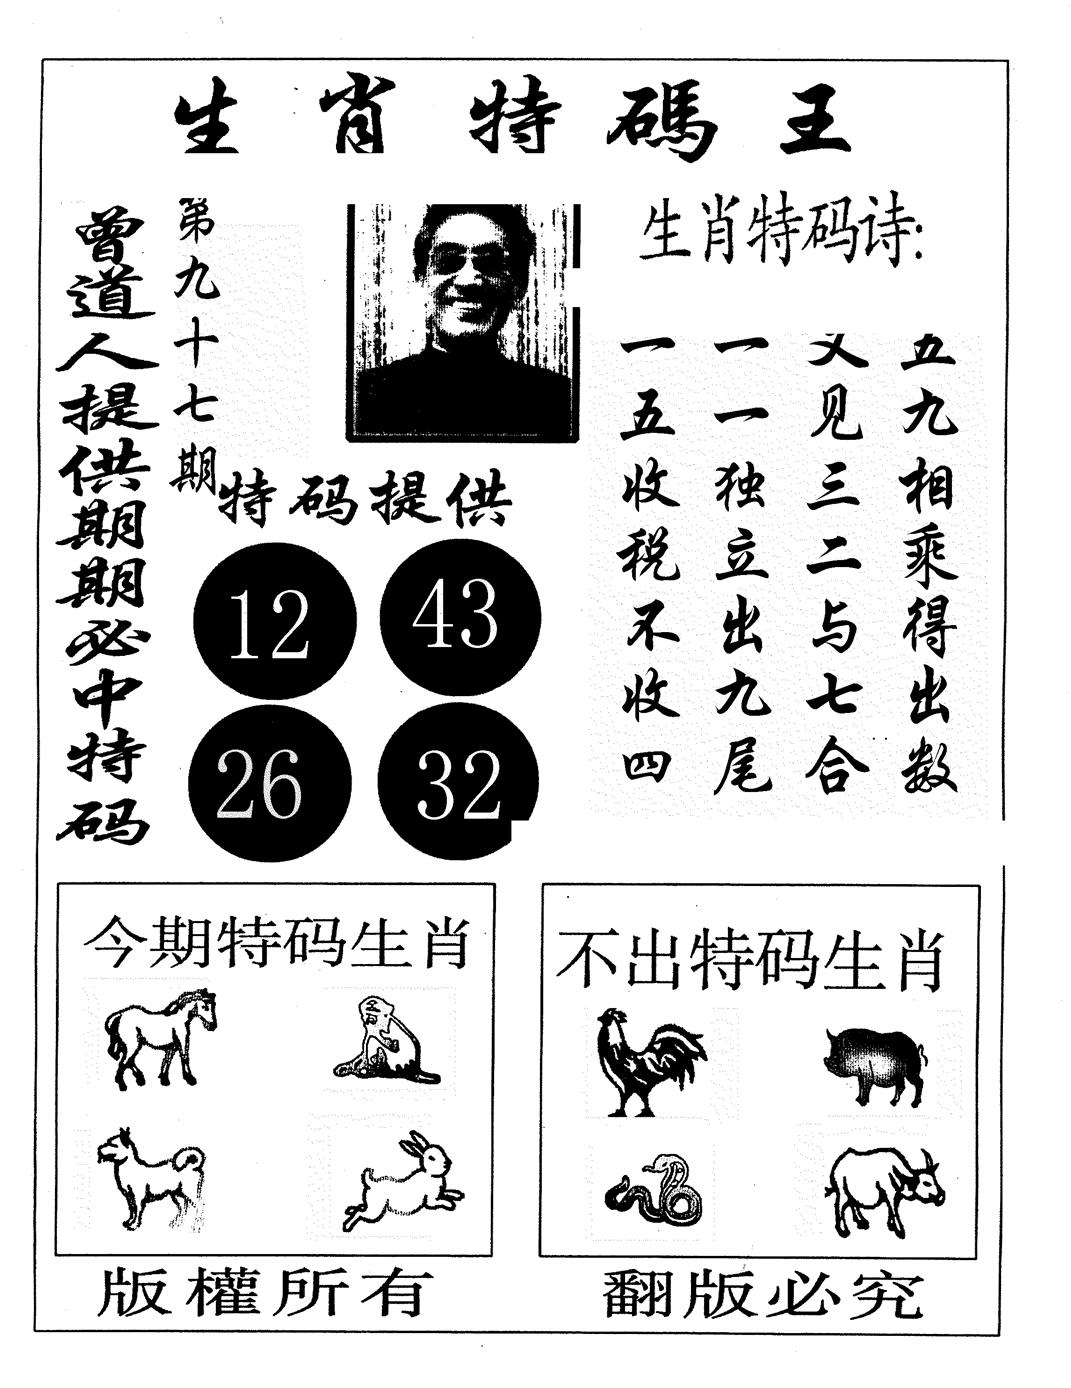 生肖特碼王
曾道人提供期期必中特码
第九十七期
生肖特码诗:
五九相乘得出数
又见三二与七合
一一独立出九尾
一五收税不收四
特码提供
12 43
26 32
今期特码生肖
不出特码生肖
版權所有
翻版必究